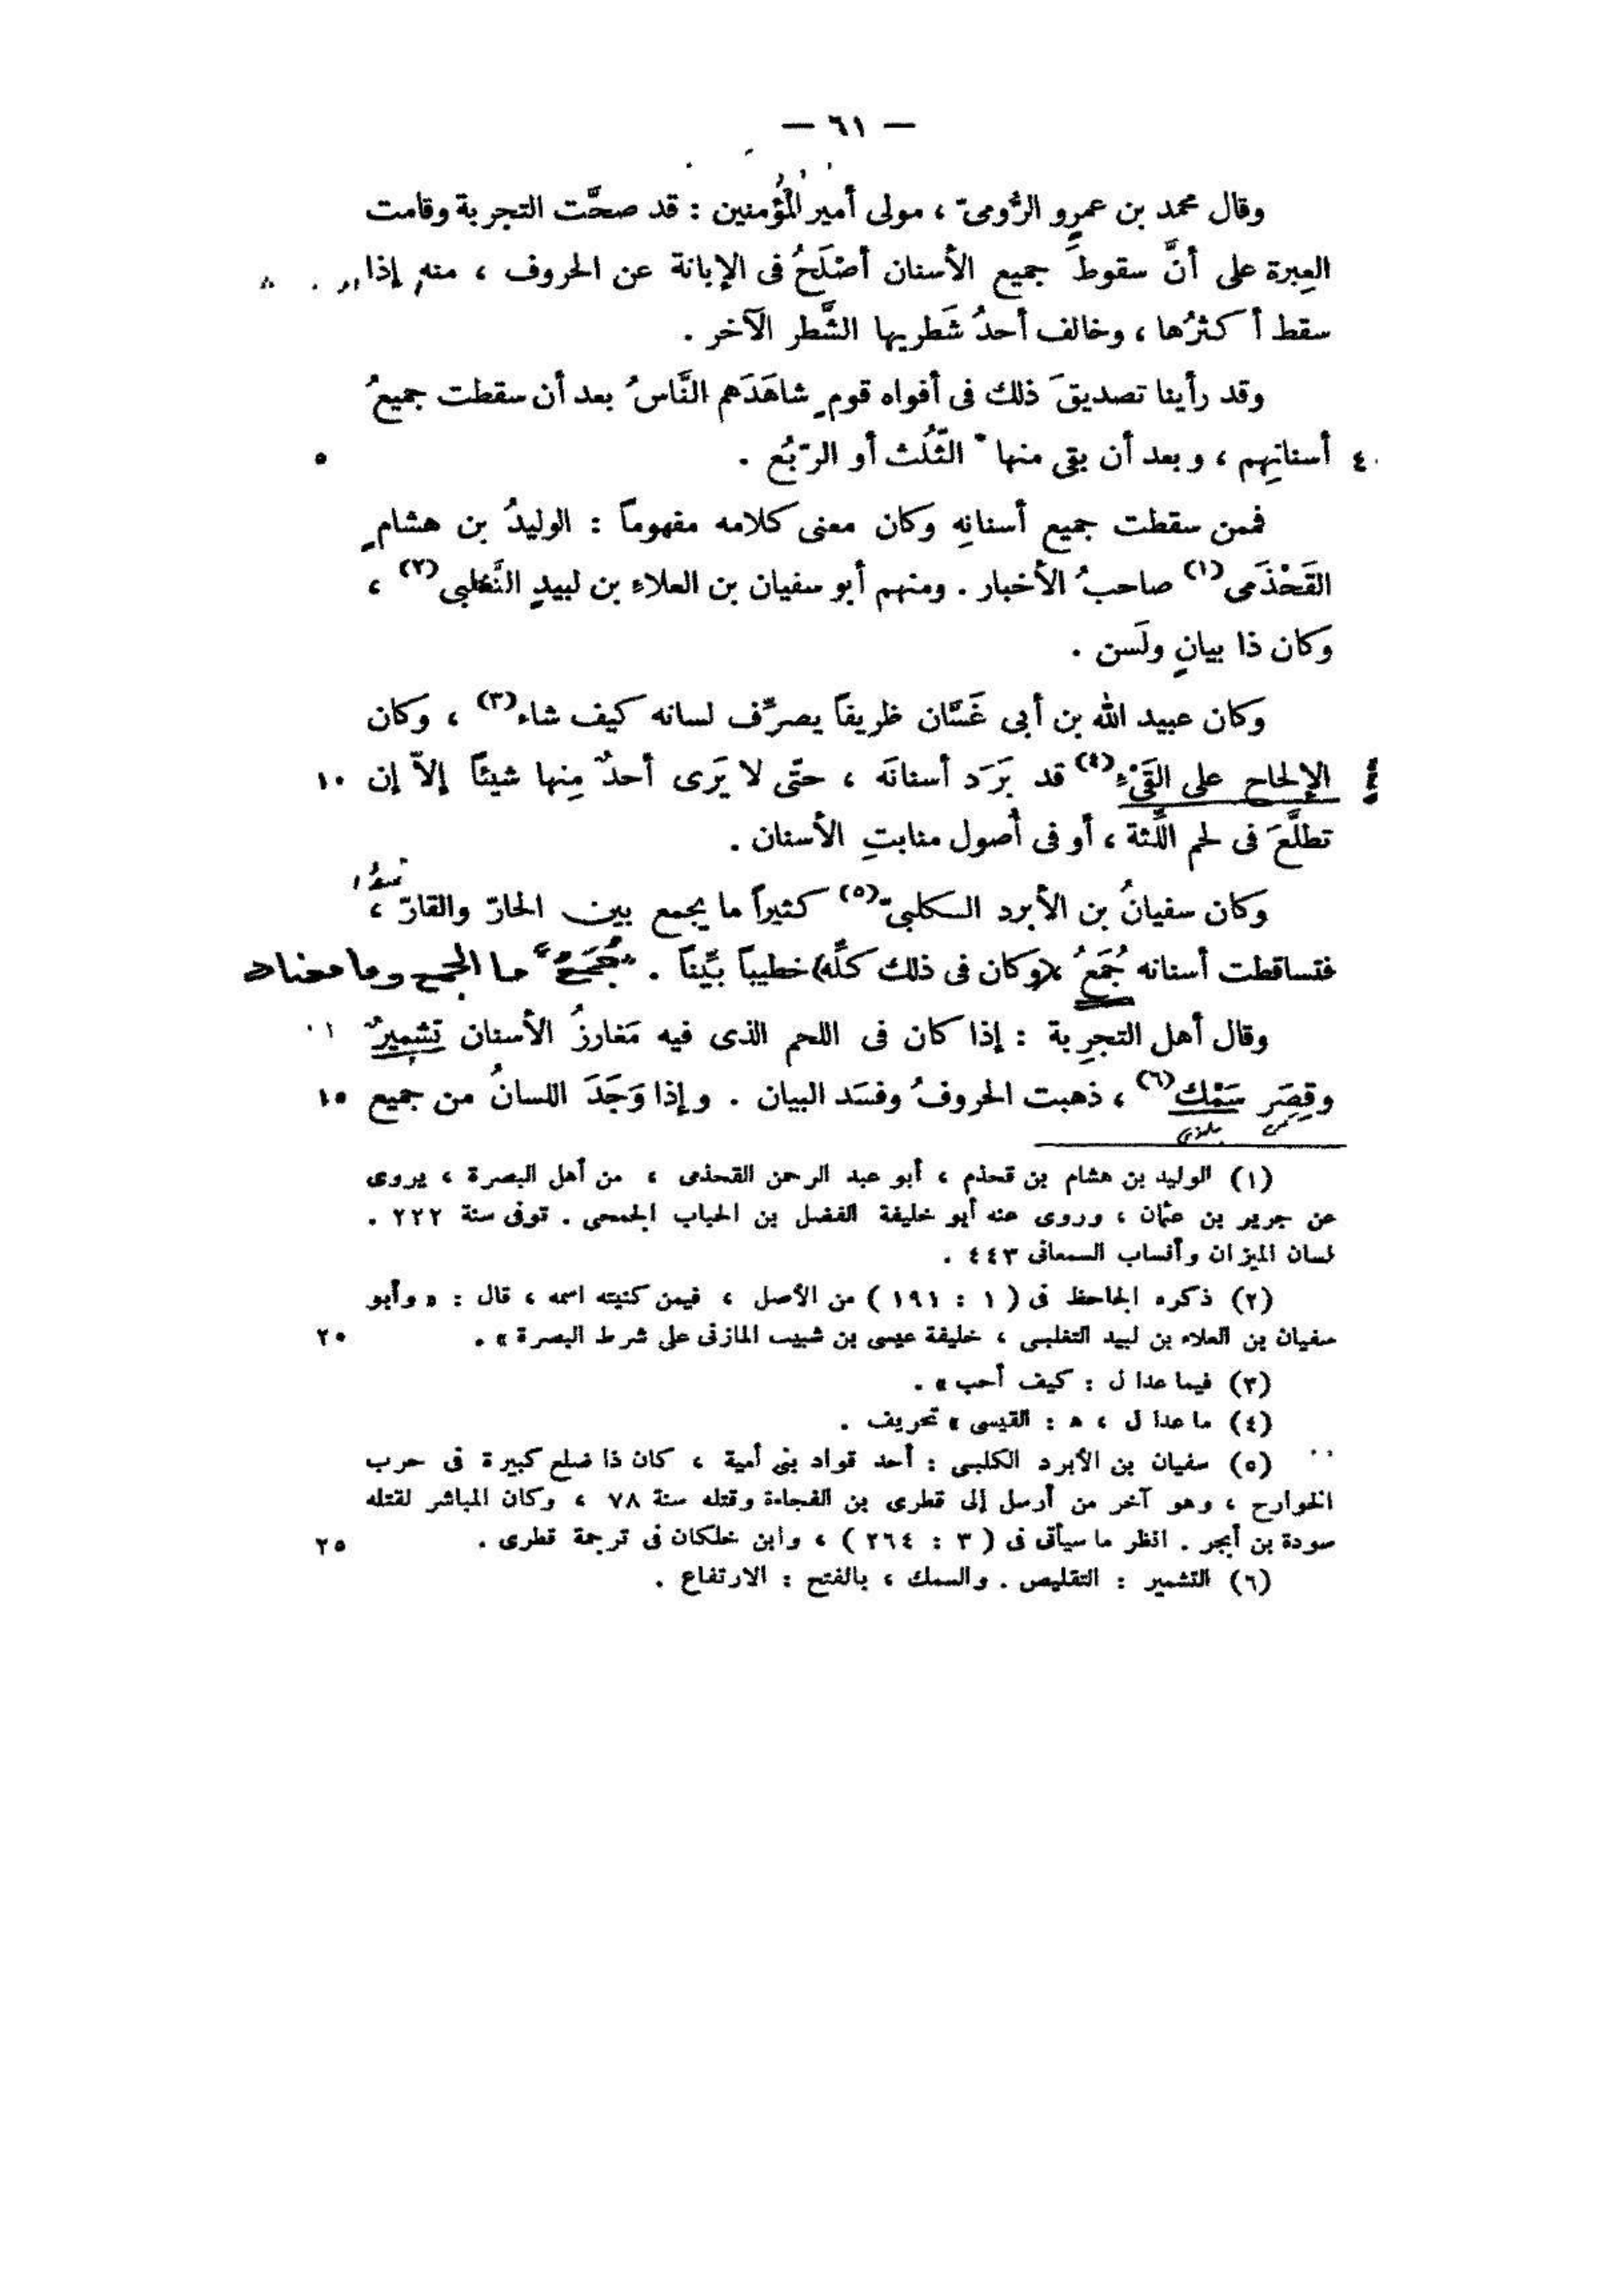 — ٦١ —
وقال محمد بن عمرٍو الرُّومىّ ، مولى أمير المُؤمنين : قد صحَّت التجربة وقامت
العِبرة على أنَّ سقوطَ جميع الأسنان أصْلَحُ فى الإبانة عن الحروف ، منه إذا
سقط أكثرُها ، وخالف أحدُ شَطريها الشَّطر الآخر .
وقد رأينا تصديقَ ذلك فى أفواه قومٍ شاهَدَهم النَّاسُ بعد أن سقطت جميعُ
٤٠ أسنانِهم ، وبعد أن بقى منها * الثُّلُث أو الرّبُع . ٥
فممن سقطت جميع أسنانِه وكان معنى كلامه مفهوماً : الوليدُ بن هشامٍ
القَحْذَمى (١) صاحبُ الأخبار . ومنهم أبو سفيان بن العلاءِ بن لبيدٍ التَّغلبى (٢) ،
وكان ذا بيانٍ ولَسن .
وكان عبيد الله بن أبى غَسَّان ظريفاً يصرِّف لسانه كيف شاء (٣) ، وكان
الإلحاح على القَىْءِ (٤) قد بَرَد أسنانَه ، حتّى لا يَرى أحدٌ مِنها شيئاً إلاّ إن ١٠
تطلَّعَ فى لحم اللِّثة ، أو فى أُصول منابتِ الأسنان .
وكان سفيانُ بن الأبرد الكلبىّ (٥) كثيراً ما يجمع بين الحارّ والقارّ ،
فتساقطت أسنانه جُمَعُ ، (وكان فى ذلك كلِّه) خطيباً بيِّناً . "جُمَعُ" ما الجمع وما معناه
وقال أهل التجرِبة : إذا كان فى اللحم الذى فيه مَغارزُ الأسنان تشميرٌ
وقِصَر سَمْك (٦) ، ذهبت الحروفُ وفسَد البيان . وإذا وَجَدَ اللسانُ من جميع ١٥
(١) الوليد بن هشام بن قحذم ، أبو عبد الرحمن القحذمى ، من أهل البصرة ، يروى
عن جرير بن عثمان ، وروى عنه أبو خليفة الفضل بن الحباب الجمحى . توفى سنة ٢٢٢ .
لسان الميزان وأنساب السمعانى ٤٤٣ .
(٢) ذكره الجاحظ فى ( ١ : ١٩١ ) من الأصل ، فيمن كنيته اسمه ، قال : « وأبو
سفيان بن العلاء بن لبيد التغلبى ، خليفة عيسى بن شبيب المازنى على شرط البصرة » . ٢٠
(٣) فيما عدا ل : كيف أحب » .
(٤) ما عدا ل ، ه : القيسى » تحريف .
(٥) سفيان بن الأبرد الكلبى : أحد قواد بنى أمية ، كان ذا ضلع كبيرة فى حرب
الخوارج ، وهو آخر من أرسل إلى قطرى بن الفجاءة وقتله سنة ٧٨ ، وكان المباشر لقتله
سودة بن أبجر . انظر ما سيأتى فى ( ٣ : ٢٦٤ ) ، وابن خلكان فى ترجمة قطرى . ٢٥
(٦) التشمير : التقليص . والسمك ، بالفتح : الارتفاع .